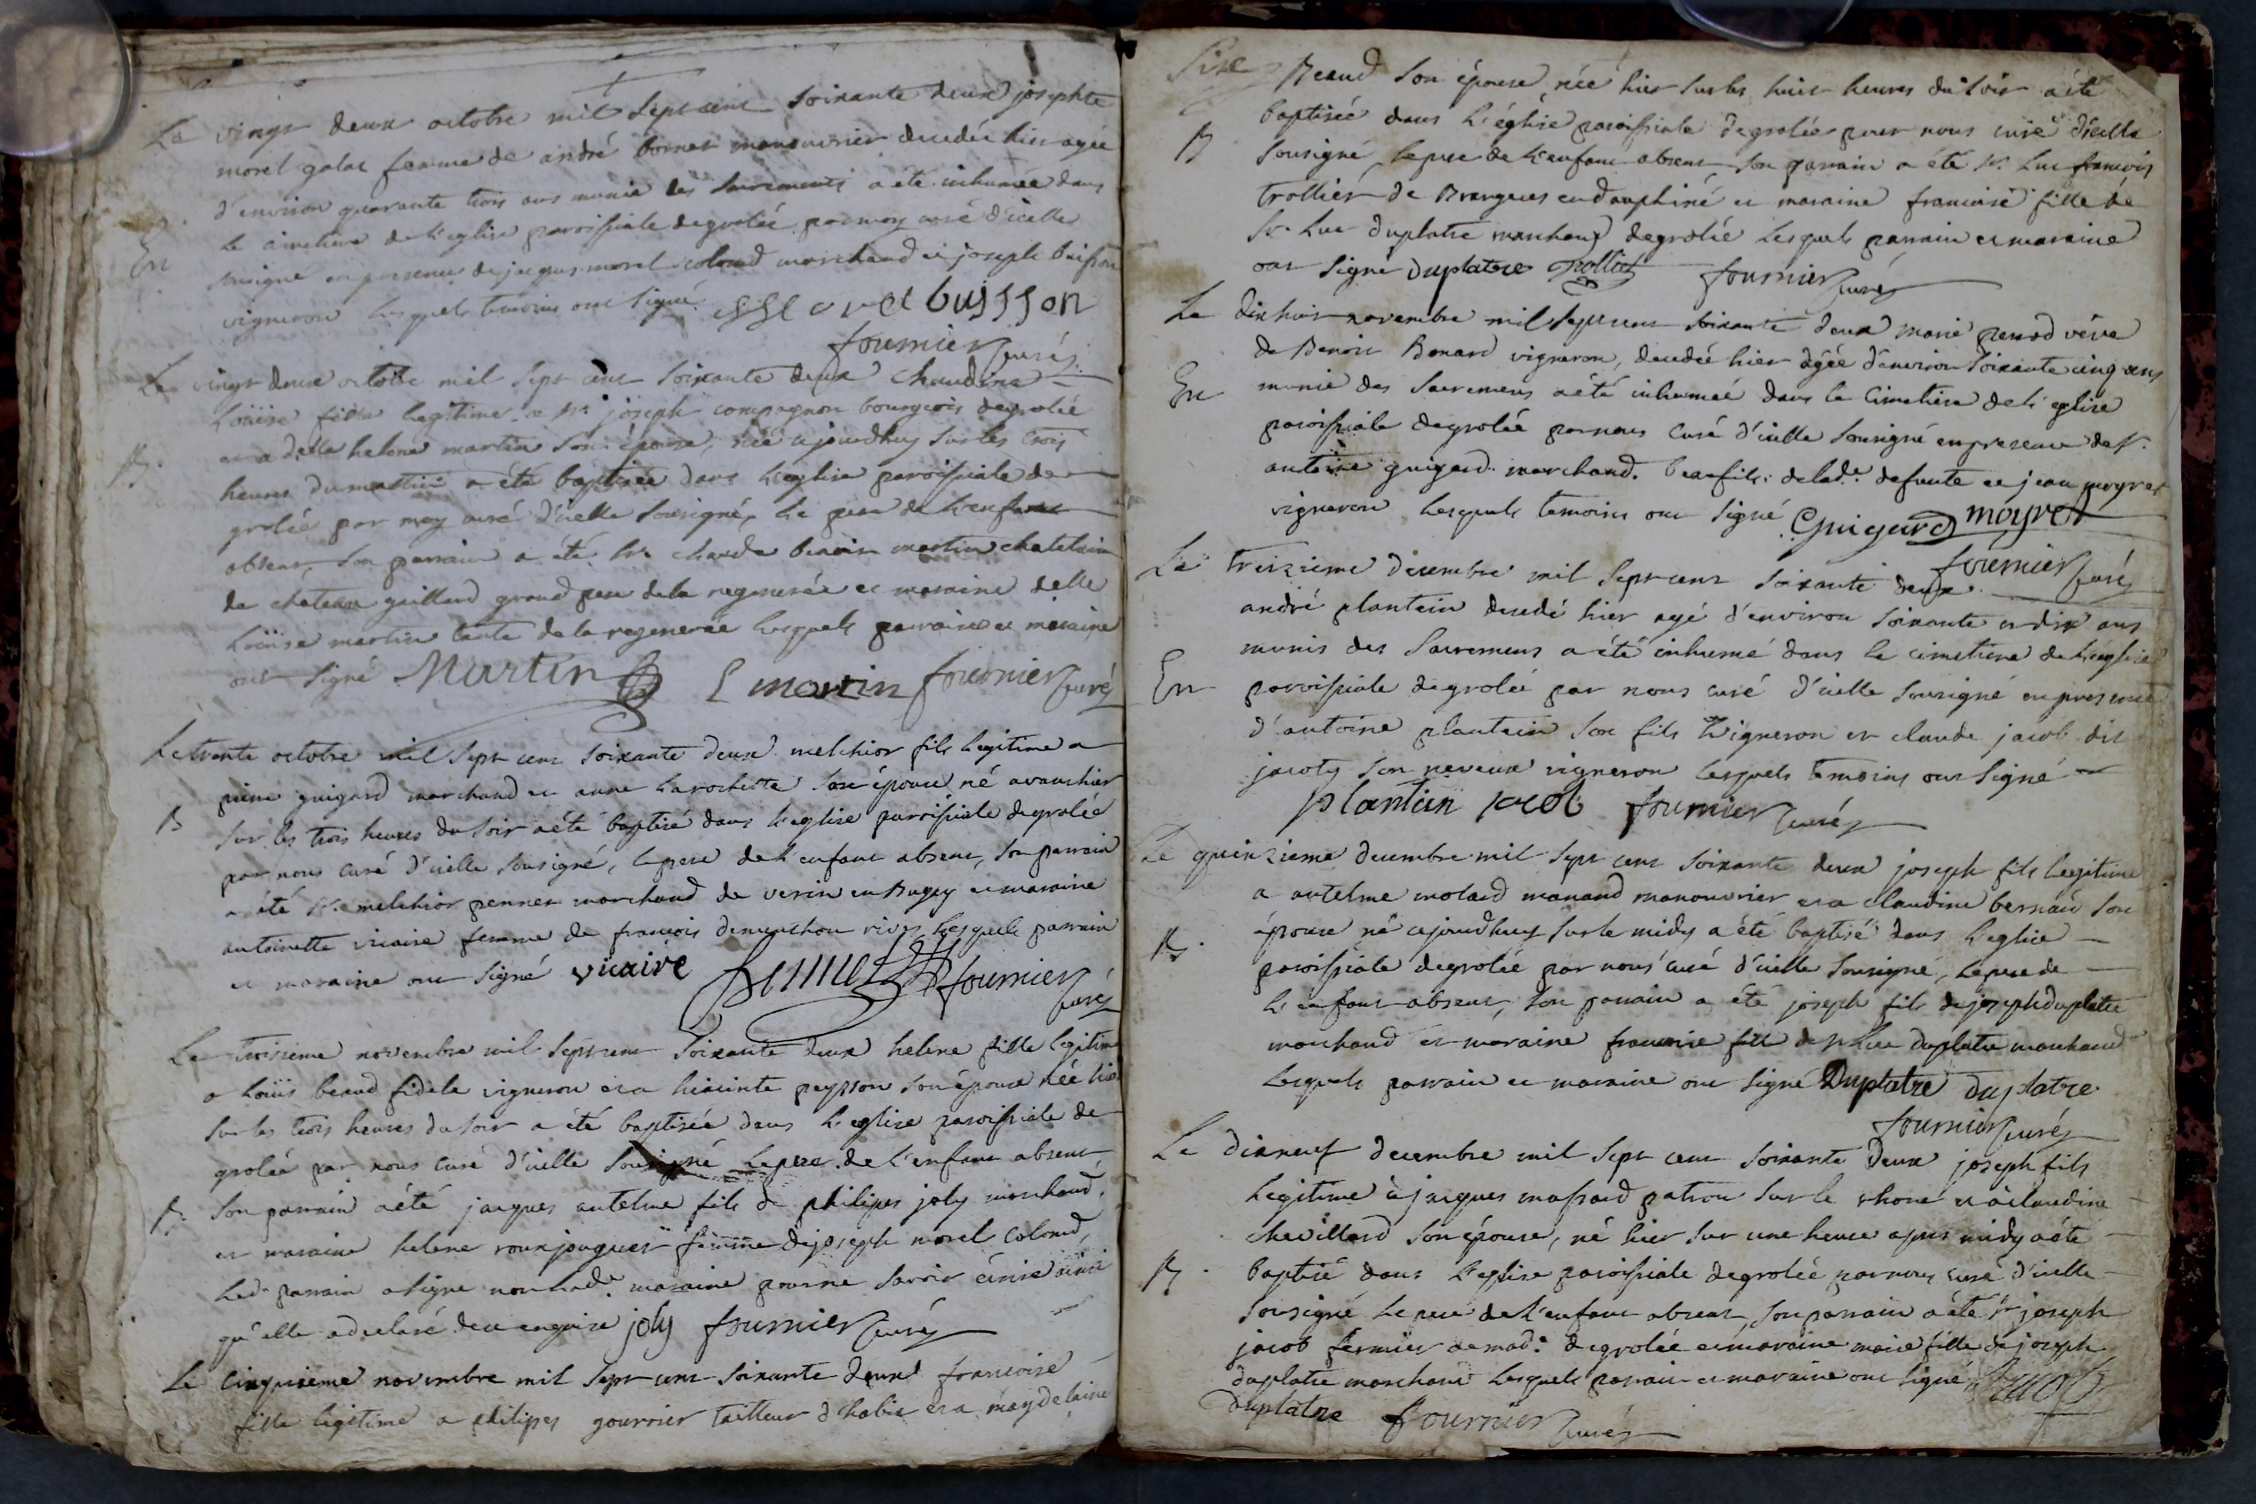 Le vingt deux octobre mil sept cent soixante deux josephte
morel galat femme de andré bornet manouvrier decedée hier agée
d'environ quarante trois ans munie des sacrements a été inhumée dans
le cimetiere de l'eglise paroissiale de grolée par moy curé d'icelle
En
sousigné en presence de jacques morel colomd marchand et joseph buisson
vigneron lesquels temoins ont signé buisson
fournier curé
Le vingt deux octobre mil sept cent soixante deux claudine
Loüise fille legitime a Sr joseph compagnon bourgeois de grolée
et a delle helene martin son épouse, née ajourdhuy sur les trois
B.
heures du mattin a été baptisée dans l'eglise paroissiale de
grolée par moy curé d'icelle sousigné, le pere de l'enfant
absent, son parrain a été Sr claude benoit martin chatelain
de chateau gaillard grand pere de la regenerée et maraine delle
Loüise martin tante de la regenerée lesquels parraine et maraine
ont signé Martin L martin fournier curé
Le trente octobre mil sept cent soixante deux melchior fils legitime a
pierre guigard marchand et anne Larochette son épouse né avanthier
B
sur les trois heures du soir a été baptisé dans l'eglise paroissiale de grolée
par nous curé d'icelle sousigné, le pere de l'enfant absent, son parrain
a été Sr melchior pennet marchand de verin en Bugey et maraine
antoinette vicaire femme de francois lesquels parrain
et maraine ont signé vicaire pennet fournier
curé
Le troisieme novembre mil sept cent soixante deux helene fille legitime
a Loüis beaud fidele vigneron et a hiacinte peysson son épouse née hier
sur les trois heures du soir a été baptisée dans l'eglise paroissiale de
grolée par nous curé d'icelle sousigné le pere de l'enfant absent
B.
son parrain a été jacques antelme fils de philipes joly marchand,
et maraine helene roux jouguet femme de joseph morel colomd,
Led. parrain a signé non lad.e maraine pour ne savoir écrire ainsi
qu'elle a declaré de ce enquise joly fournier curé
Le cinquieme novembre mil sept cent soixante deux francoise
fille legitime a philipes gourrier tailleur d'habit et a maydelaine
Sixe Beaud son épouse née hier sur les huit heures du soir a été
baptisée dans l'église paroissiale de grolée par nous curé d'icelle
B
sousigné, le pere de l'enfant absent son parrain a été Sr. Luc francois
trollier de Brangues en dauphiné et maraine francoise fille de
Sr. Luc duplatre marchand de grolée lesquels parrain et maraine
ont signé duplatre trollier fournier curé
Le dixhuit novembre mil sept cent soixante deux marie penod véve
de Benoit Bonard vigneron, decedée hier agée d'environ soixante cinq ans
En
munie des sacremens a été inhumée dans le cimetiere de l'eglise
paroissiale de grolée par nous curé d'icelle sousigné en presence de Sr.
antoine guigard marchand. beaufils de lad.e defunte et jean moyret
vigneron lesquels temoins ont signé Guigard moyret
fournier curé
Le treizieme decembre mil sept cent soixante deux
andré plantein decedé hier agé d'environ soixante et dix ans
munis des sacremens a été inhumé dans le cimetiere de l'eglise
En
paroissiale de grolée par nous curé d'icelle sousigné en presence
d'antoine plantein son fils vigneron et claude jacob dit
jacoty son neveux vigneron lesquels temoins ont signé
plantin jacob fournier curé
Le quinzieme decembre mil sept cent soixante deux joseph fils legitime
a antelme molard manand manouvrier et a claudine bernard son
B.
épouse né ajourdhuy sur le midy a été baptisé dans l'eglise
paroissiale de grolée par nous curé d'icelle sousigné, le pere de
l'enfant absent, son parrain a été joseph fils de joseph duplatre
marchand et maraine francoise fille de Sr Luc duplatre marchand
lesquels parrain et maraine ont signé Duplatre duplatre
fournier curé
Le dixneuf decembre mil sept cent soixante deux joseph fils
legitime à jacques massard patron sur le rhone et à claudine
chevillard son épouse, né hier sur une heure apres midy a été
B.
baptisé dans l'eglise paroissiale de grolée par nous curé d'icelle
sousigné le pere de l'enfant absent, son parrain a été Sr joseph
jacob fermier de mad.e de grolée et maraine marie fille de joseph
duplatre marchand lesquels parrain et maraine ont signé Jacob
duplatre fournier curé